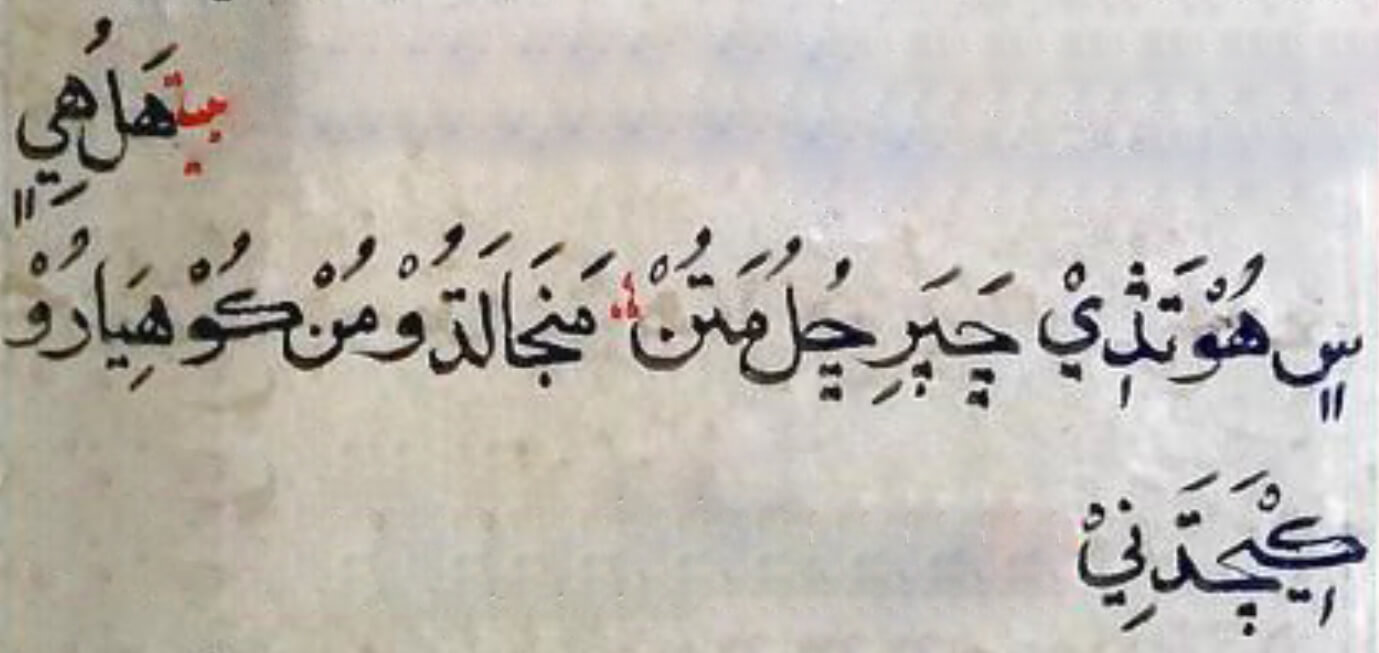 بيت هَلُهِيٖ
سٖ هُوْ تَڎِيْ چَپَرِ چُلُ مَتَنُْ مَنجَالَدُوْ مُنْ كُوْ هِيَارُوْ
كِيْچَدَّنِيْ